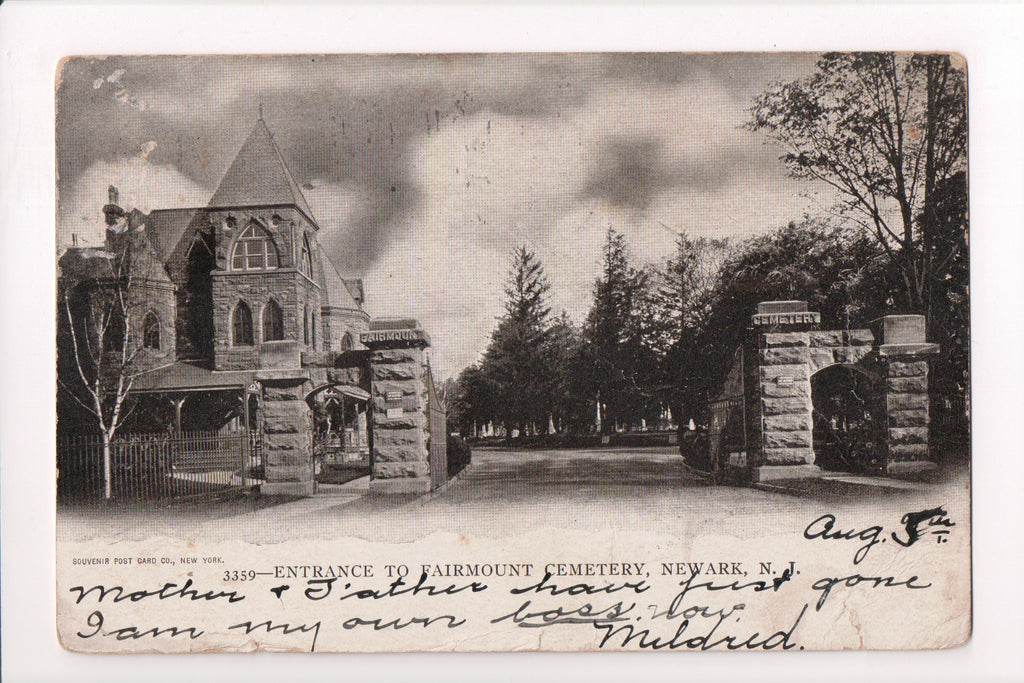 FAIRMOUNT
CEMETERY
Aug. 5th.
SOUVENIR POST CARD CO., NEW YORK.
3359—ENTRANCE TO FAIRMOUNT CEMETERY, NEWARK, N. J.
Mother + Father have just gone
I am my own boss now.
Mildred.